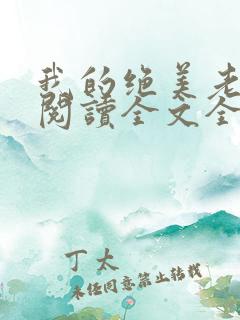 我的绝美老
阅读全文全
丁太
未经同意禁止转载